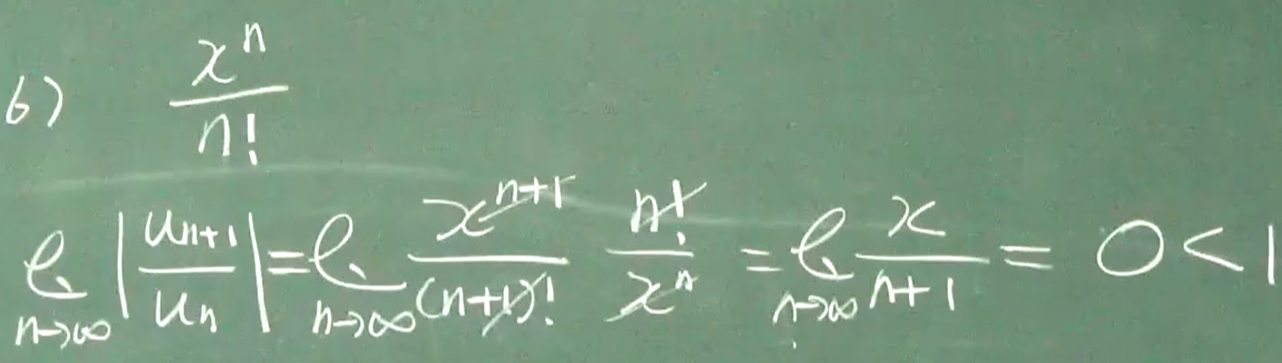 6) \frac{x^n}{n!}
\ell_{n \to \infty} \left| \frac{u_{n+1}}{u_n} \right| = \ell_{n \to \infty} \frac{x^{n+1}}{(n+1)!} \frac{n!}{x^n} = \ell_{n \to \infty} \frac{x}{n+1} = 0 < 1